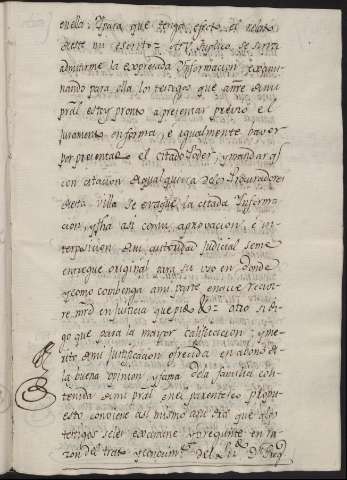 en ella. Y para que tenga efecto el relato
de este mi escrito = A V. Suplico se sirva
admitirme la expresada Ynformacion exami
nando para ella los testigos que ante de mi
pral estoy pronto a presentar previo el
juramento en forma, e igualmente haver
por presentado el citado Poder, y mandar q.
con citacion de qualquiera de los Procuradores
de esta Villa se evaque la citada Ynforma
cion, y fha asi con aprovacion, e in
terposicion de su autoridad judicial se me
entregue original para su uso en donde
y como combenga a mi parte en que recivi
re mrd en justicia que pido &.ª = otro si di
go que para la mayor calificacion, y me
rito de mi justificacion ofrecida en abono de
la buena opinion, y fama de la familia con
tenida de mi pral en el parentesco propu
esto conviene asi mismo a que a los
testigos se les examine, y pregunte en ra
zon del trato y conocim.to del